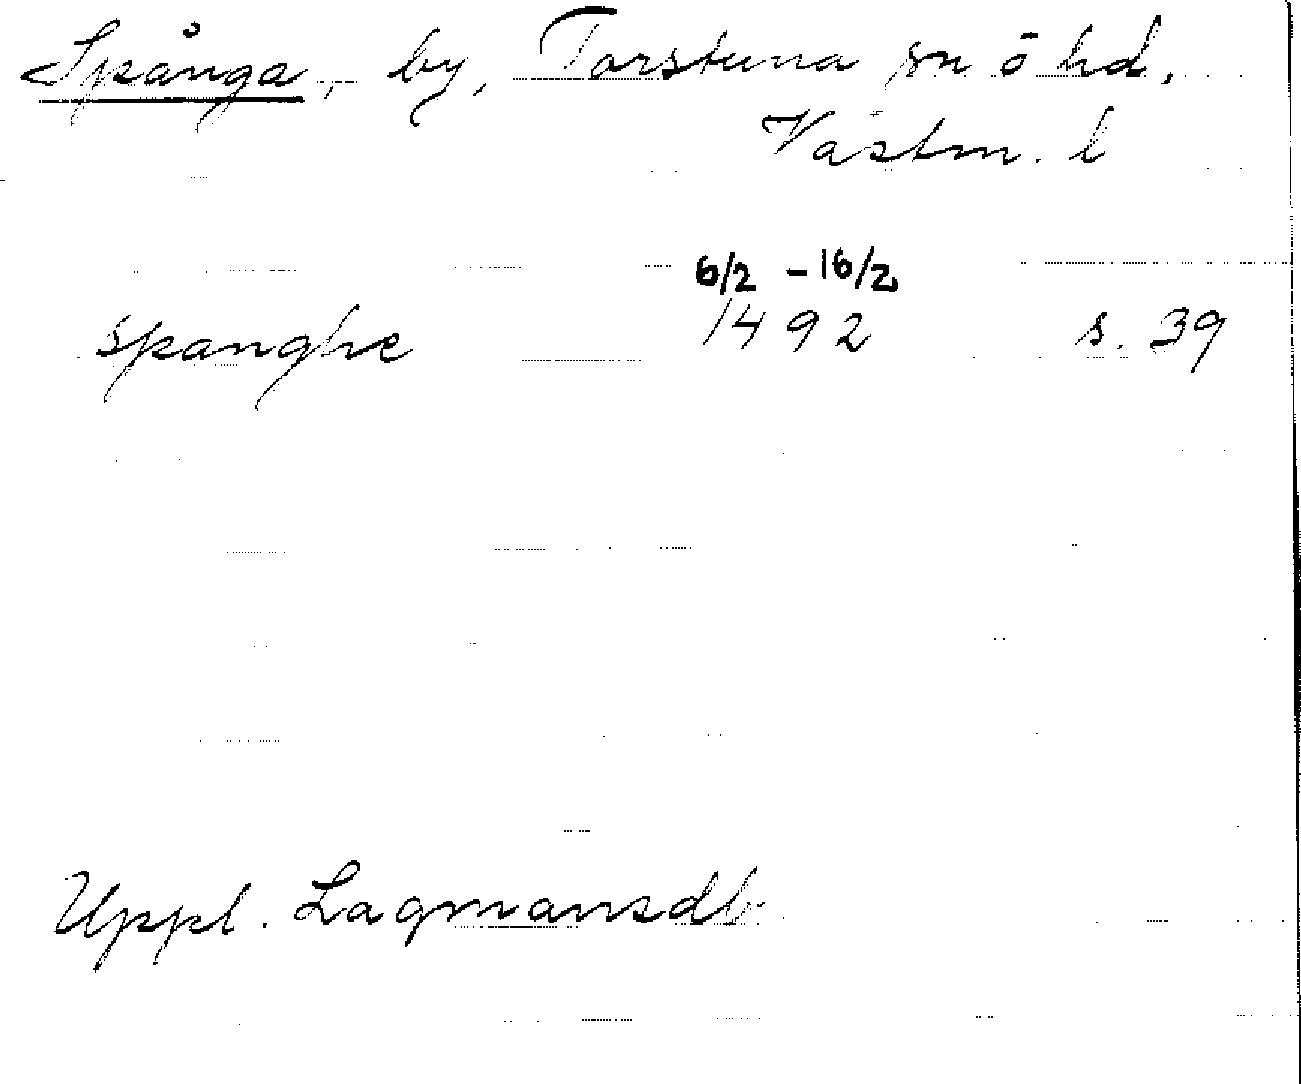 Spånga, by, Torstuna sn o hd,
Västm. l
6/2 - 16/2
spanghe 1492 s. 39
Uppl. Lagmansdb